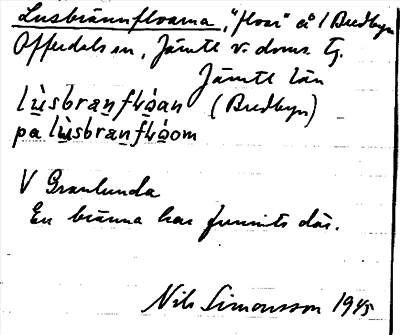 Lusbrännfloarna, "floar" å / Bredbyn
Offerdals sn, Jämtl. v. doms. tg.
Jämtl län
lùsbranfɫóan (Bredbyn)
pa lùsbranfɫóom
V Granlunda
En bränna har funnits där.
Nils Simonsson 1945